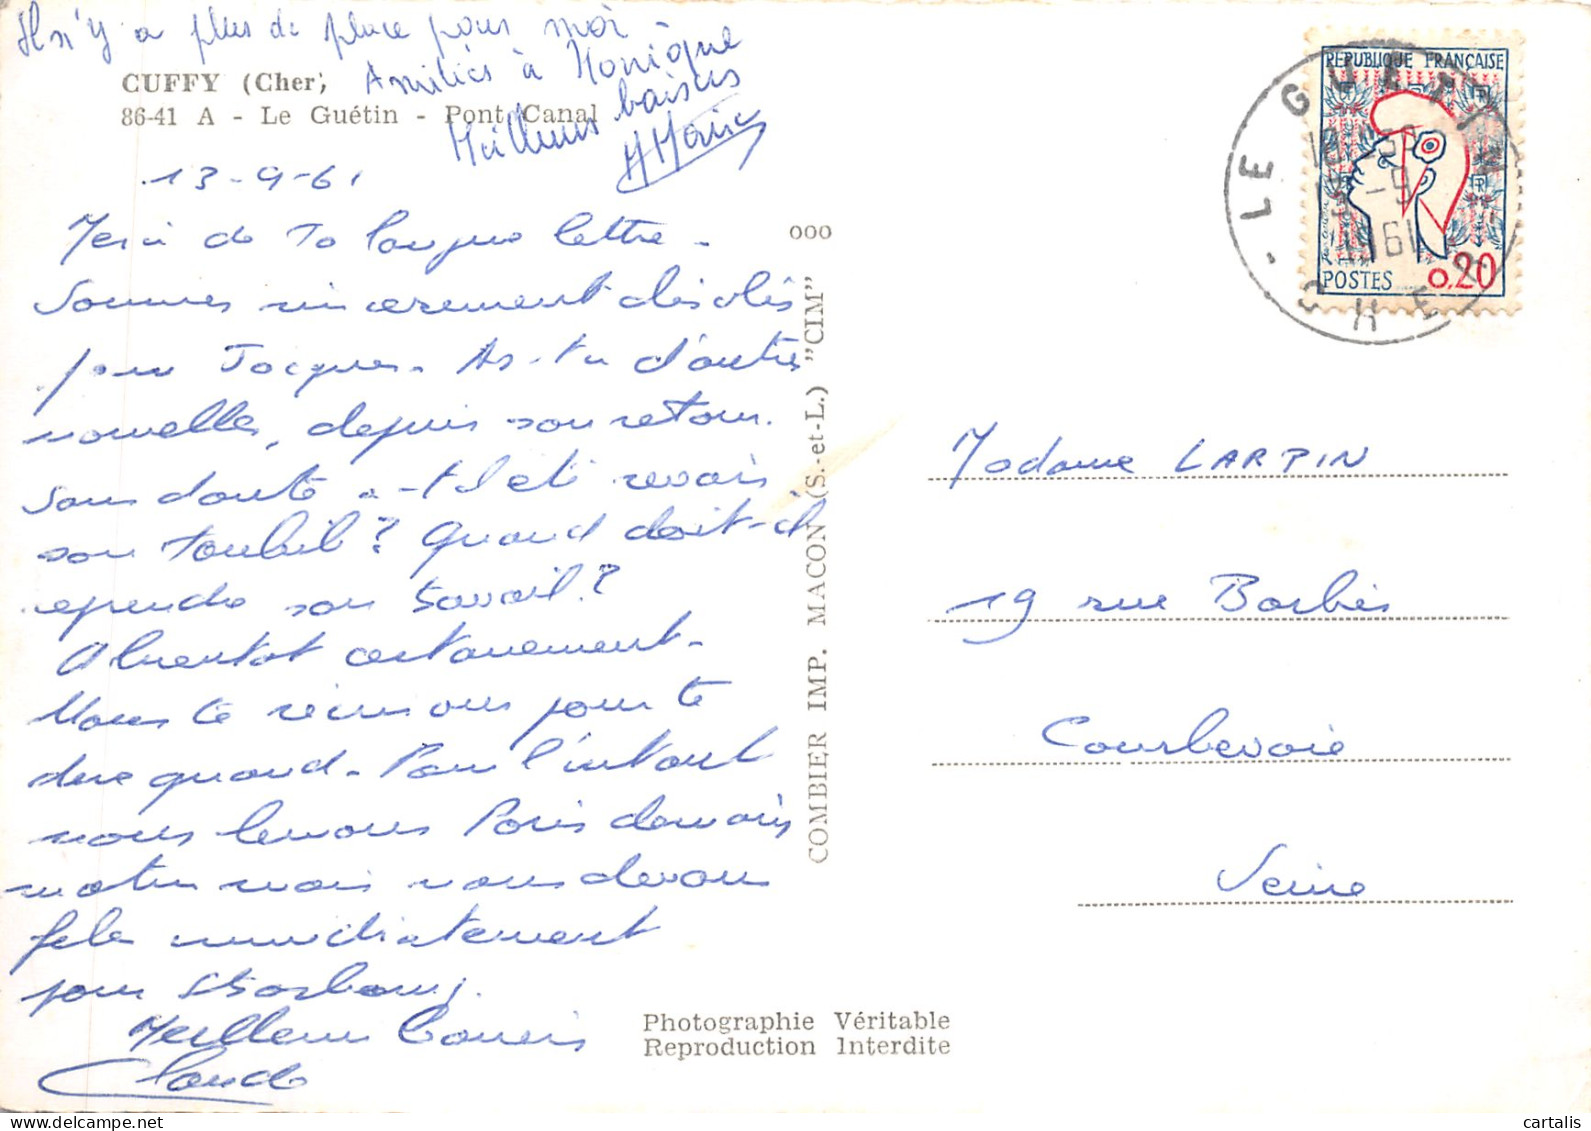 Il n'y a plus de place pour moi -
Amitiés à Monique
Meilleurs baisers
CUFFY (Cher)
86-41 A - Le Guétin - Pont Canal
13-9-61
Merci de ta longue lettre -
Sommes sincerement désolés
pour Jacques - As-tu d'autres
nouvelles, depuis son retour.
Sans doute a-t-il eté
son ? Quand doit-il
reprendre son travail?
A bientot certainement -
Nous te pour te
dire quand - Pour l'instant
nous Paris
matin mais nous devons
filer immediatement
pour Strasbourg.
Meilleurs baisers
Claude
000
COMBIER IMP. MACON (S.-et-L.) "CIM"
Photographie Véritable
Reproduction Interdite
REPUBLIQUE FRANÇAISE
POSTES 0,20
LE GUETIN
CHER
-9
1961
Madame LARPIN
19 rue Barbès
Courbevoie
Seine
cartalis
Delcampe.net